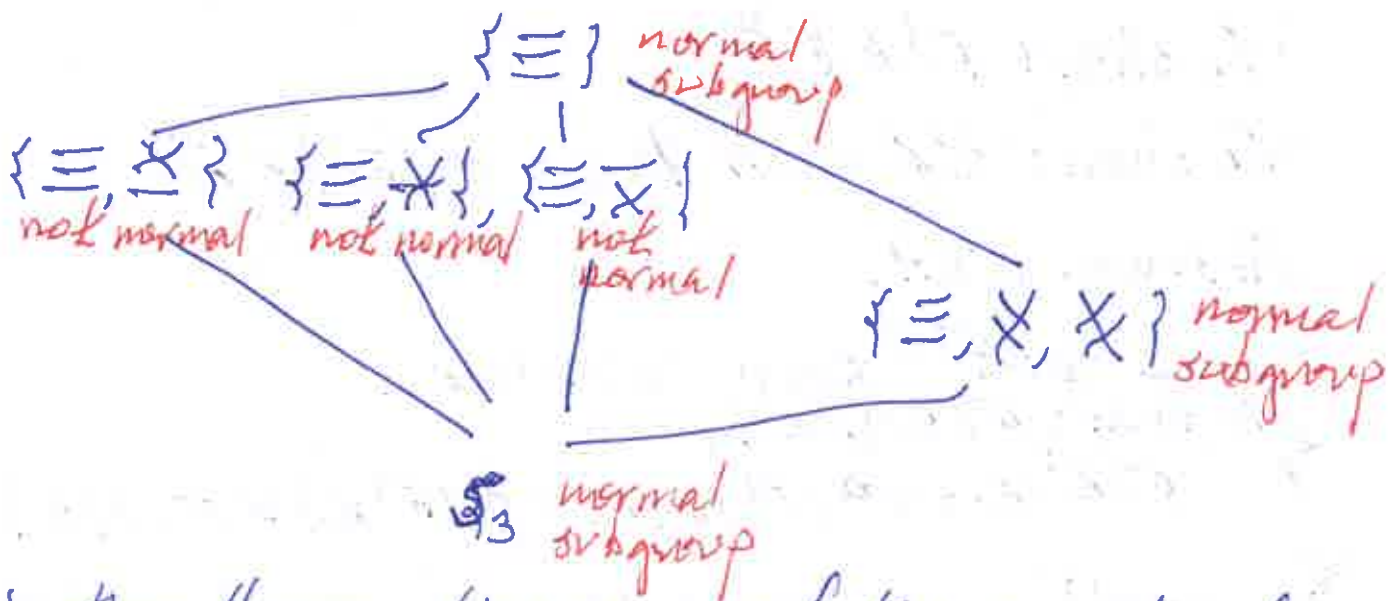 {☰} normal
subgroup
{☰, }, {☰, }, {☰, }
not normal not normal not
normal
{☰, , } normal
subgroup
S₃ normal
subgroup